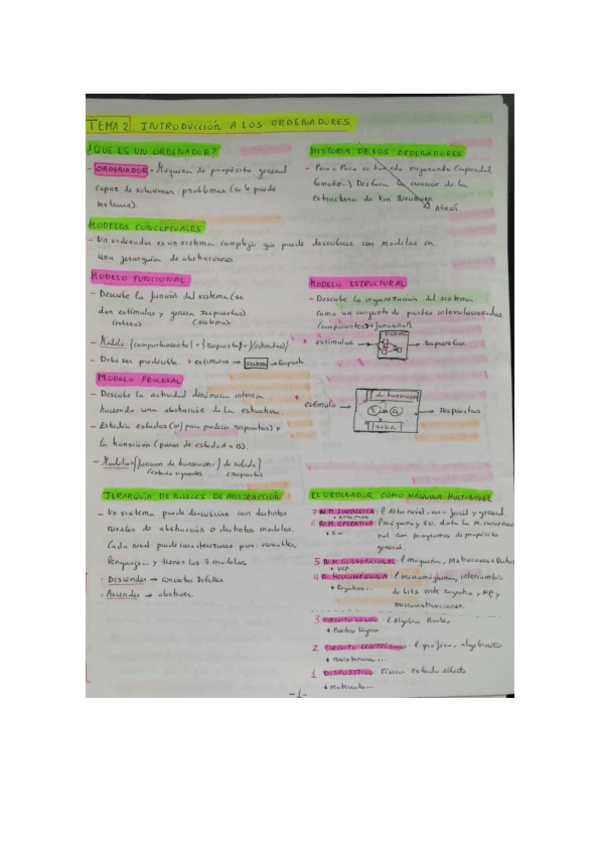 TEMA 2: INTRODUCCIÓN A LOS ORDENADORES
¿QUE ES UN ORDENADOR?
- ORDENADOR = Máquina de propósito general
capaz de solucionar problemas (se le puede
instruir).
HISTORIA DE LOS ORDENADORES
- Poco a Poco se han ido mejorando (capacidad,
tamaño...) Destaca la creación de la
estructura de Von Neumann
Atrás
MODELOS CONCEPTUALES
- Un ordenador es un sistema complejo que puede describirse con modelos en
una jerarquía de abstracciones.
MODELO FUNCIONAL
- Describe la función del sistema (se
dan estímulos y genera respuestas).
- Modelo {comportamiento} = {respuesta} = f(estímulos)}
- Debe ser predecible. estímulos → sistema → Respuesta
MODELO ESTRUCTURAL
- Describe la organización del sistema
como un conjunto de partes interrelacionadas
(componentes) + funcional).
estímulos → sistema → respuestas
MODELO PROCESAL
- Describe la actividad dinámica interna
haciendo una abstracción de la estructura.
- Estudia estados (in) para producir respuestas) y
la transición (paso de estado A a B).
- Modelo = {función de transición; f de salida}
estímulo → f de transición
f salida → respuestas
JERARQUÍA DE NIVELES DE ABSTRACCIÓN
- Un sistema puede describirse con distintos
niveles de abstracción o distintos modelos.
Cada nivel puede caracterizarse por: variables,
lenguaje... y tienen los 3 modelos.
- Descender → concretar detalles
- Ascender → abstraer
EL ORDENADOR COMO MÁQUINA MULTINIVEL
7 N.M. SIMBÓLICA: l Alto nivel, fácil y general.
6 N.M. OPERATIVA: l máquina y SO, dota la m convencio
+ S.O nal con programas de propósito
general.
5 N.M. CONVENCIONAL: l máquina, Instrucciones + Datos
+ UCP
4 N. MICROMÁQUINA: l micromáquina, intercambio
+ Registros... de bits entre registros y MP y
microinstrucciones.
3 CIRCUITO LÓGICO: l Álgebra Boole,
+ Puertas lógicas
2 CIRCUITO ELECTRÓNICO: l gráfico, algebraico
+ Resistencias...
1 DISPOSITIVO: Física estado sólido
+ materiales...
-1-